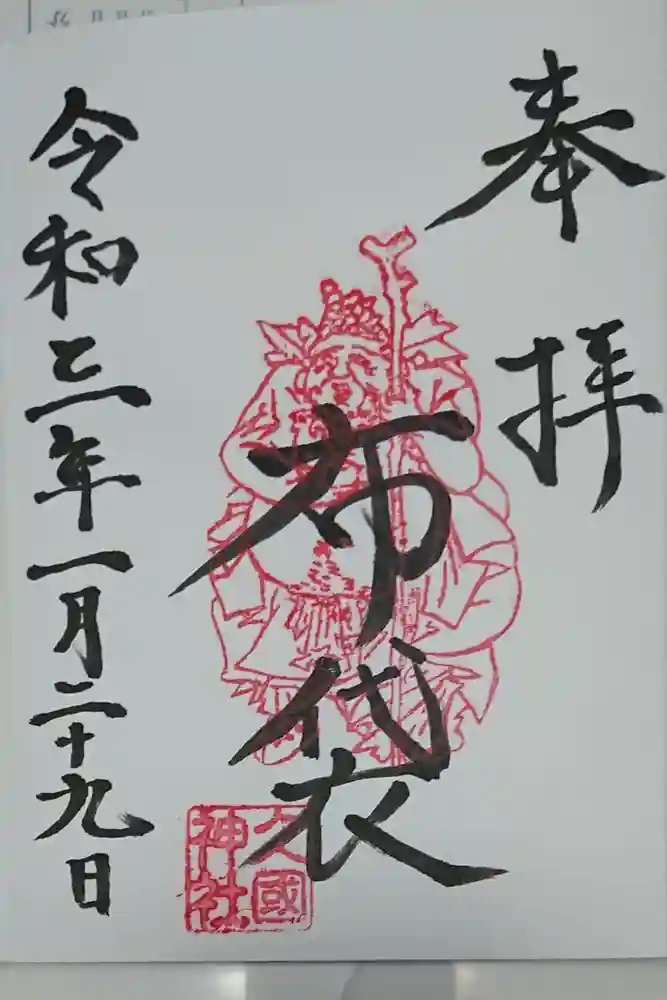 奉拝
布袋
久國神社
令和三年一月二十九日